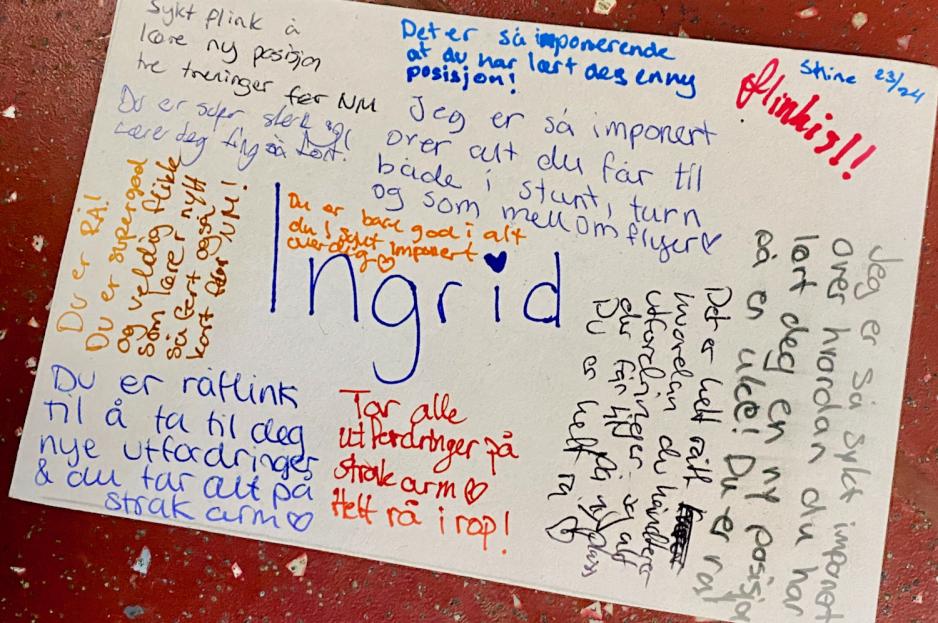 Sykt flink å
lære ny posisjon
tre treninger før NM
Det er så imponerende
at du har lært deg en ny
posisjon!
Shine 23/24
flinkis!!
Du er super sterk og
lærer deg ting så fort!
Jeg er så imponert
over alt du får til
både i stunt, turn
og som mellomflyer♡
Du er RÅ!
Du er supergod
og veldig flink
som lærer nytt
så fort også
kort før NM!
Du er bare god i alt
du! Sykt imponert
over deg♡
Ingrid
Du er råflink
til å ta til deg
nye utfordringer
& du tar alt på
strak arm♡
Tar alle
utfordringer på
strak arm♡
Helt rå i rop!
Det er helt rått
hvordan du håndterer
utfordringer og alt
du får til på ny plass
Du er helt rå ♡
Jeg er så sykt imponert
over hvordan du har
lært deg en ny posisjon
på en uke! Du er rå!